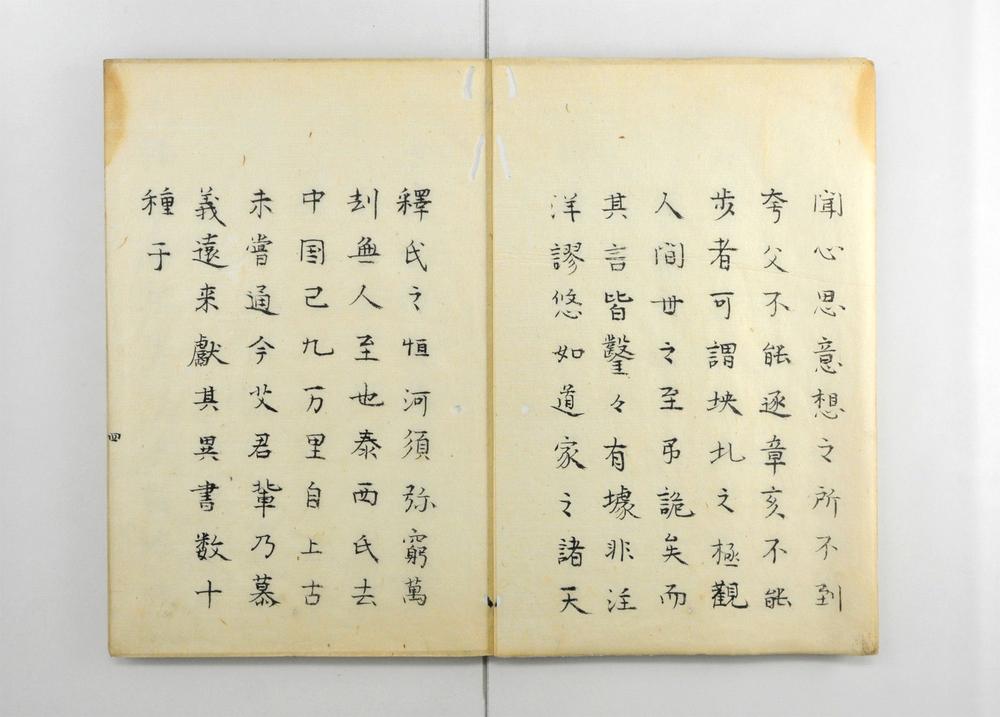 聞心思意想之所不到
夸父不能逐章亥不能
步者可謂坱圠之極觀
人間世之至弔詭矣而
其言皆鑿々有據非汪
洋謬悠如道家之諸天
釋氏之恒河須弥窮萬
刦無人至也泰西氏去
中国已九万里自上古
未嘗通今艾君輩乃慕
義遠来獻其異書数十
種于
四